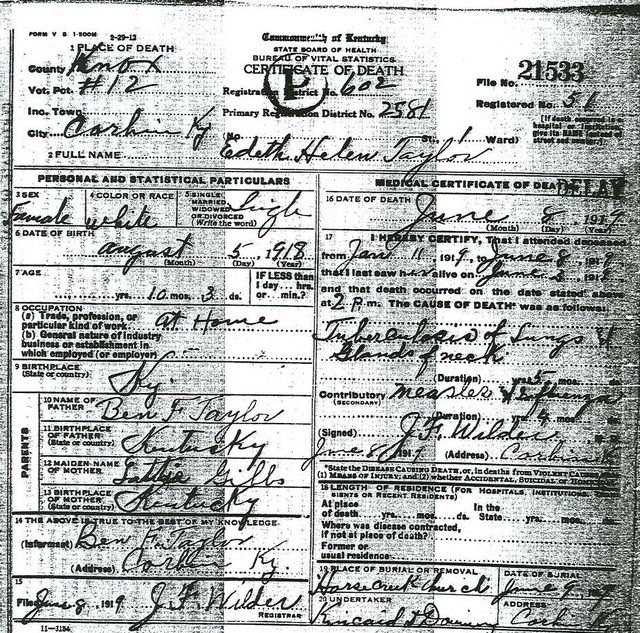 FORM V. S. 1-500M 2-29-12
Commonwealth of Kentucky
STATE BOARD OF HEALTH
BUREAU OF VITAL STATISTICS
CERTIFICATE OF DEATH
1 PLACE OF DEATH
County Knox
Vot. Pct. #12
Inc. Town
City Corbin Ky
Registration District No. 602
Primary Registration District No. 2581
File No. 21533
Registered No. 51
(No. St., 1 Ward)
[If death occurred in a hospital or institution, give its NAME instead of street and number.]
2 FULL NAME Edeth Helen Taylor
PERSONAL AND STATISTICAL PARTICULARS
3 SEX Female
4 COLOR OR RACE white
5 SINGLE, MARRIED, WIDOWED OR DIVORCED (Write the word) Single
6 DATE OF BIRTH august 5, 1918
(Month) (Day) (Year)
7 AGE
yrs. 10 mos. 3 ds.
IF LESS than 1 day ... hrs. or ... min.?
8 OCCUPATION
(a) Trade, profession, or particular kind of work. at Home
(b) General nature of industry business or establishment in which employed (or employer)
9 BIRTHPLACE (State or country) Ky.
PARENTS
10 NAME OF FATHER Ben F Taylor
11 BIRTHPLACE OF FATHER (State or country) Kentucky
12 MAIDEN NAME OF MOTHER Gibbs
13 BIRTHPLACE OF MOTHER (State or country) Kentucky
14 THE ABOVE IS TRUE TO THE BEST OF MY KNOWLEDGE
(Informant) Ben F. Taylor
(Address) Corbin Ky.
15
Filed June 8 1919 J. F. Wilder
REGISTRAR
11-3184
MEDICAL CERTIFICATE OF DEATH
DELAY
16 DATE OF DEATH June 8, 1919
(Month) (Day) (Year)
17 I HEREBY CERTIFY, That I attended deceased
from Jan 11 1919, to June 8 191
that I last saw her alive on June 191
and that death occurred on the date stated above
at 2 P. m. The CAUSE OF DEATH was as follows:
Tuberculosis of Lungs &
Glands of neck
(Duration) yrs. 5 mos.
Contributory Measles
(SECONDARY)
(Duration) yrs. mos.
(Signed) J. F. Wilder
June 8 1919 (Address) Corbin
*State the DISEASE CAUSING DEATH, or, in deaths from VIOLENT
(1) MEANS OF INJURY; and (2) whether ACCIDENTAL, SUICIDAL or
18 LENGTH OF RESIDENCE (FOR HOSPITALS, INSTITUTIONS,
SIENTS OR RECENT RESIDENTS)
At place of death yrs. mos. ds.
In the State yrs. mos.
Where was disease contracted, if not at place of death?
Former or usual residence
19 PLACE OF BURIAL OR REMOVAL Horse Creek Church
DATE OF BURIAL June 9
20 UNDERTAKER Kincaid &
ADDRESS Corbin